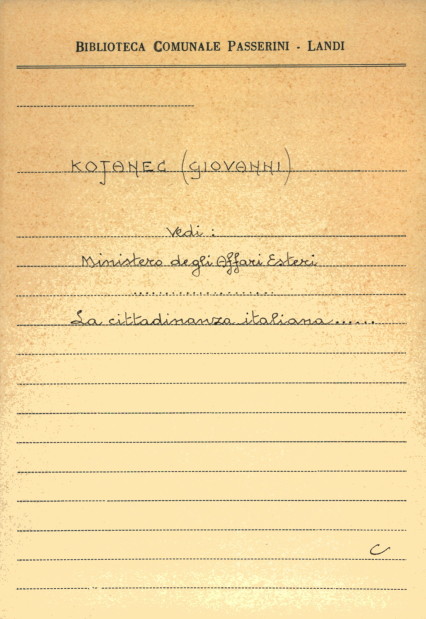 BIBLIOTECA COMUNALE PASSERINI - LANDI
KOJANEC (GIOVANNI)
Vedi :
Ministero degli Affari Esteri
.....................
La cittadinanza italiana......
C